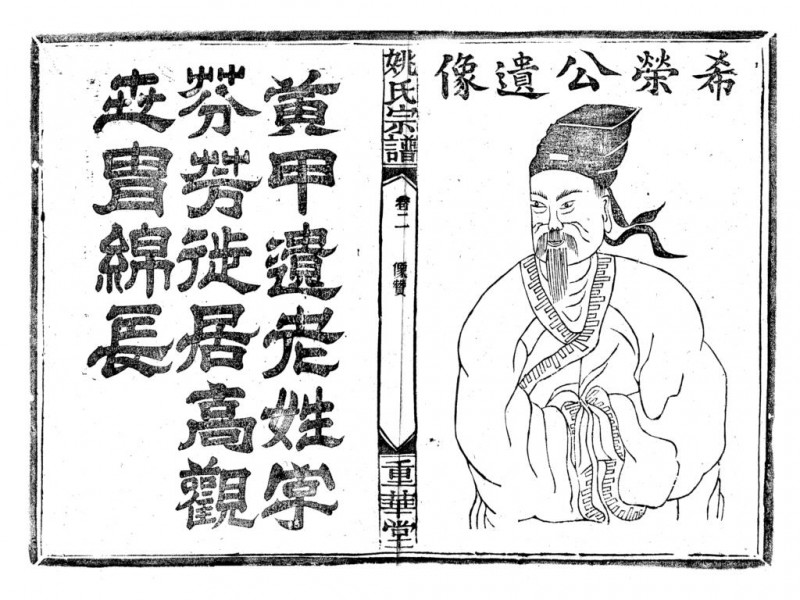 希榮公遺像
姚氏宗譜
卷二
像贊
重華堂
黃甲遺老姓字
芬芳徙居高觀
世冑綿長